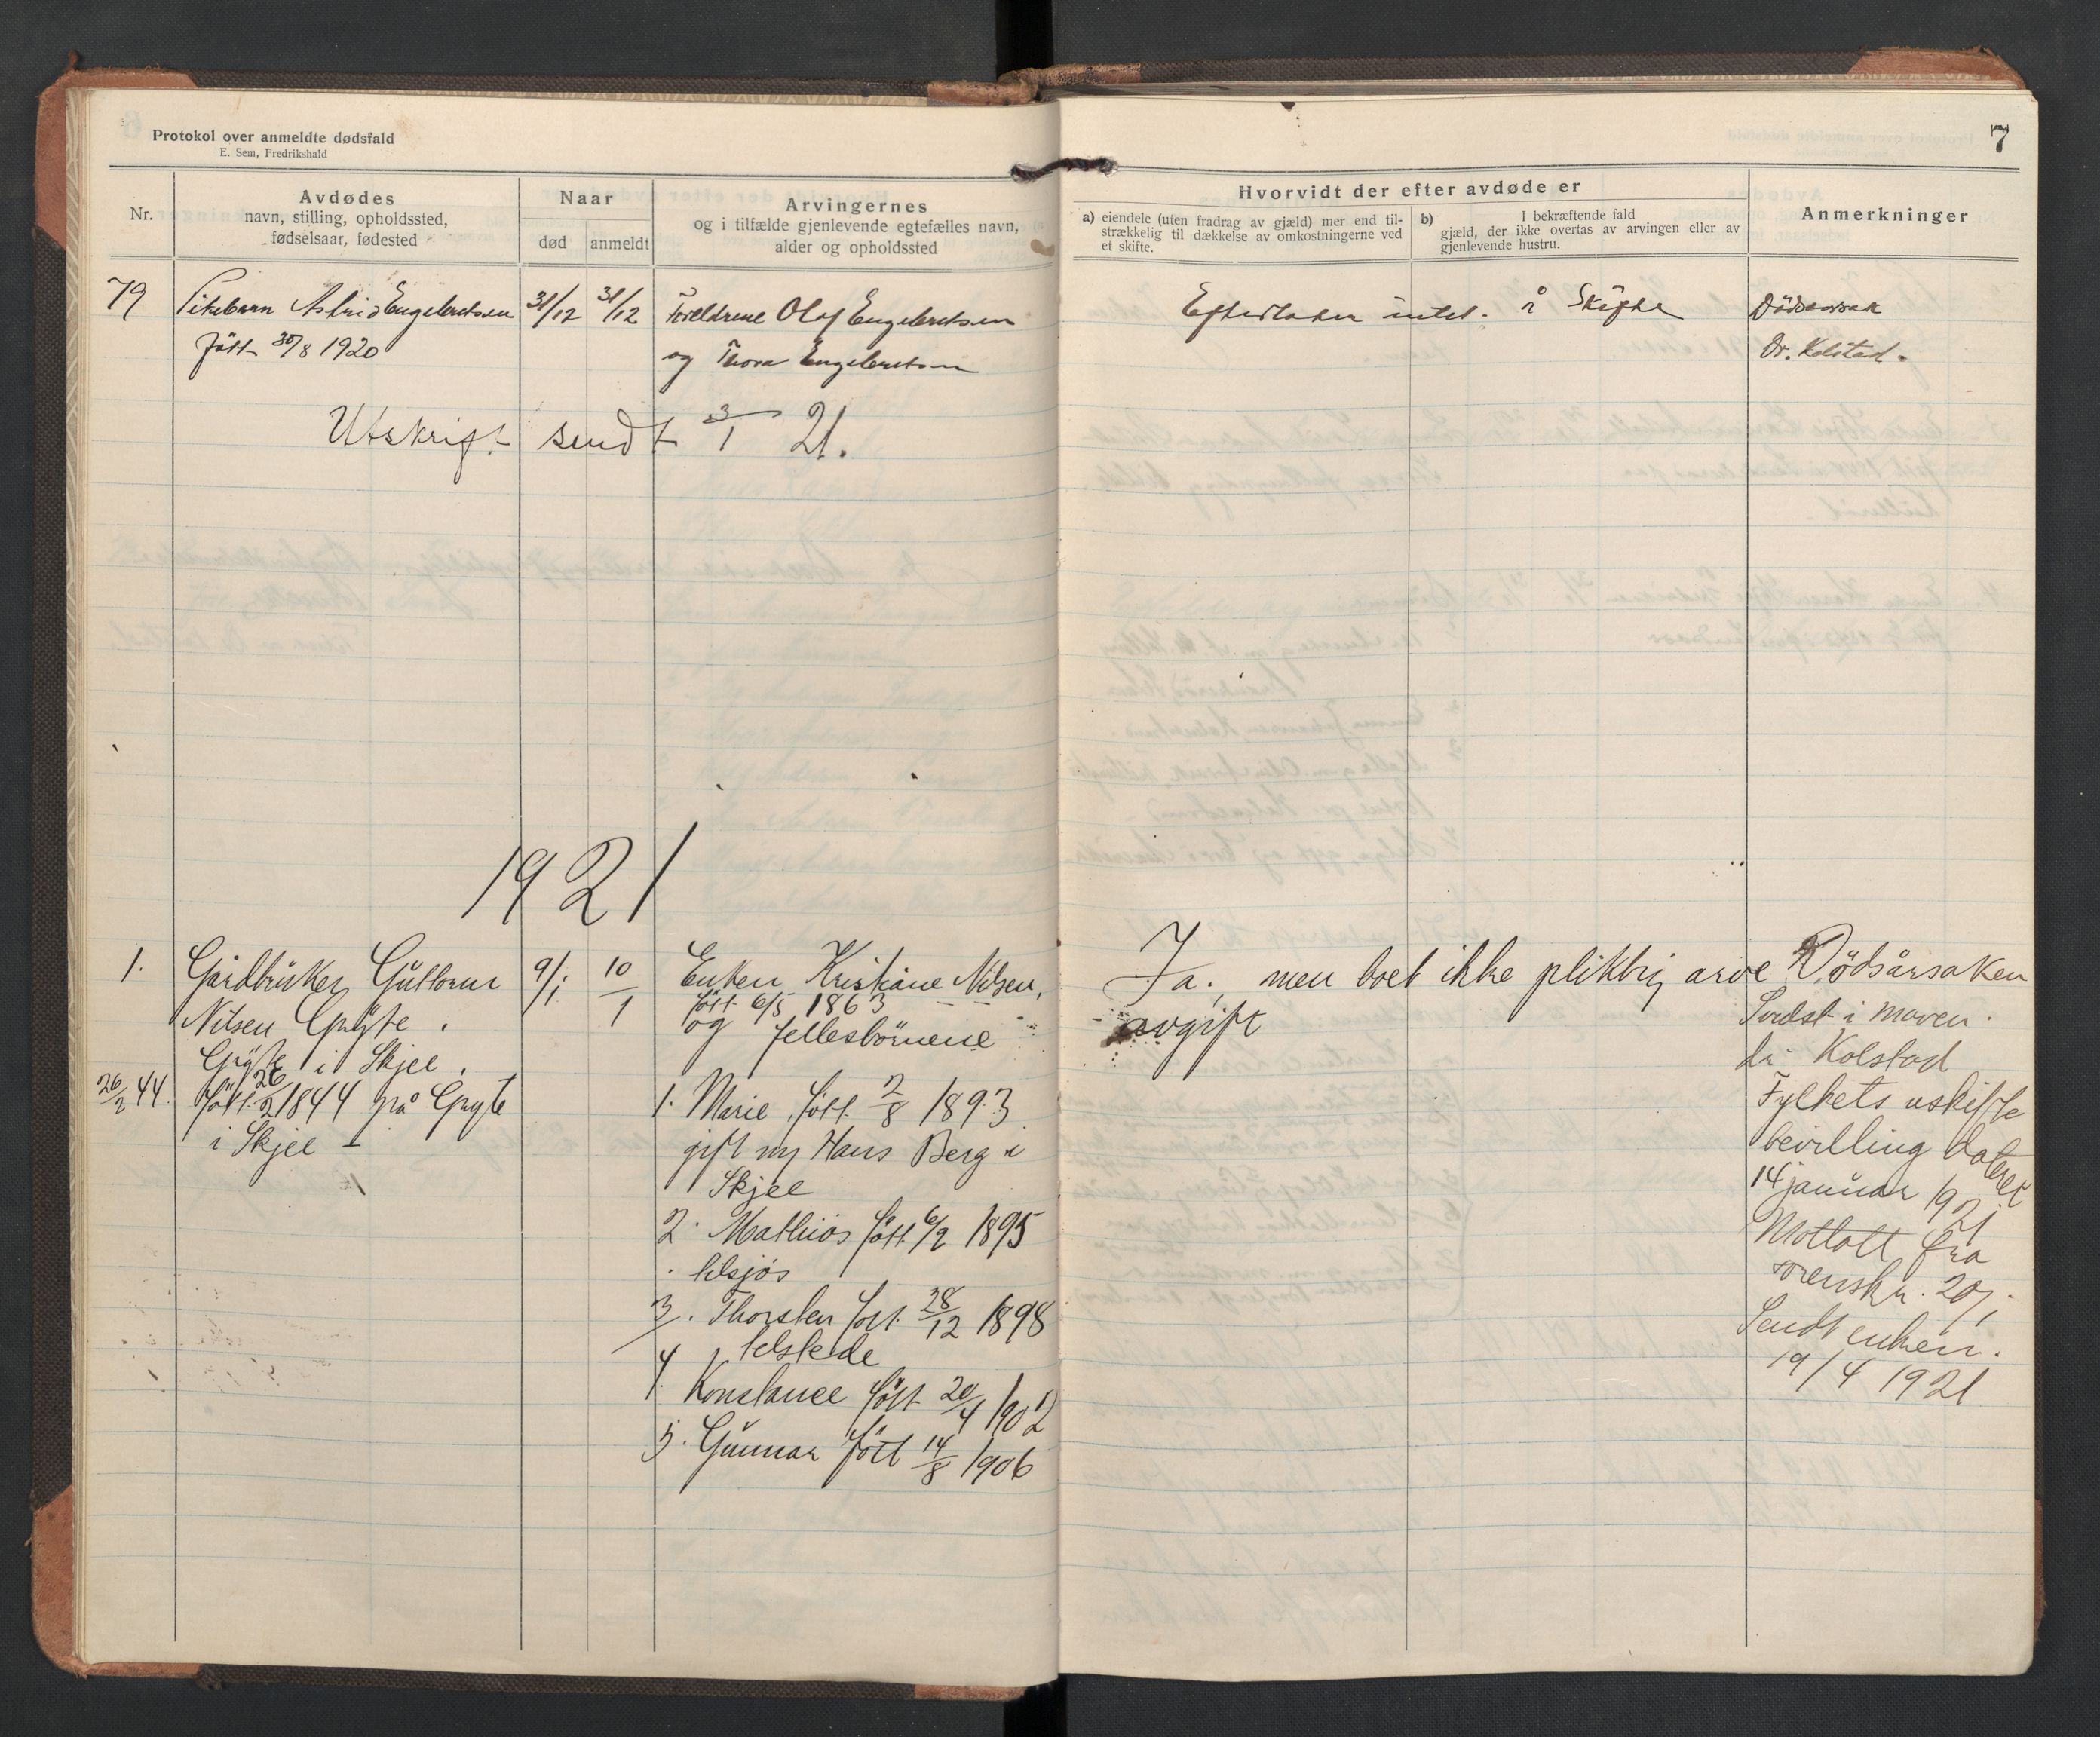 Protokol over anmeldte dødsfald
E. Sem, Fredrikshald
7
Nr.
Avdødes
navn, stilling, opholdssted,
fødselsaar, fødested
Naar
død
anmeldt
Arvingernes
og i tilfælde gjenlevende egtefælles navn,
alder og opholdssted
Hvorvidt der efter avdøde er
a) eiendele (uten fradrag av gjæld) mer end til-
strækkelig til dækkelse av omkostningerne ved
et skifte.
b) I bekræftende fald
gjæld, der ikke overtas av arvingen eller av
gjenlevende hustru.
Anmerkninger
79
Pikebarn Astrid Engebretsen
født 30/8 1920
31/12
31/12
Foreldrene Olaf Engebretsen
og Thora Engebretsen
Efterlater intet å Skifte
Dödsorsak
Dr. Kolstad.
Utskrift sendt 3/1 21.
1921
1.
Gårdbruker Guttorm
Nilsen Gryte.
Gryte i Skjee.
26/2 44.
født 26/2 1844 på Gryte
i Skjee
9/1
10/1
Enken Kristiane Nilsen,
født 6/5 1863
og fellesbörnene
1. Marie født 2/8 1893
gift m/ Hans Berg i
Skjee
2. Mathias født 6/2 1895
tilsjøs
3. Thorsten født 28/12 1898
tilstede
4. Konstance født 20/4 1902
5. Gunnar født 14/8 1906
Ja, men boet ikke pliktig arve
avgift
Dödsårsaken
i maven.
dr Kolstad
Fylkets uskifte
bevilling datert
14 januar 1921
Mottatt fra
sorenskr. 20/1.
Sendt enken.
19/4 1921